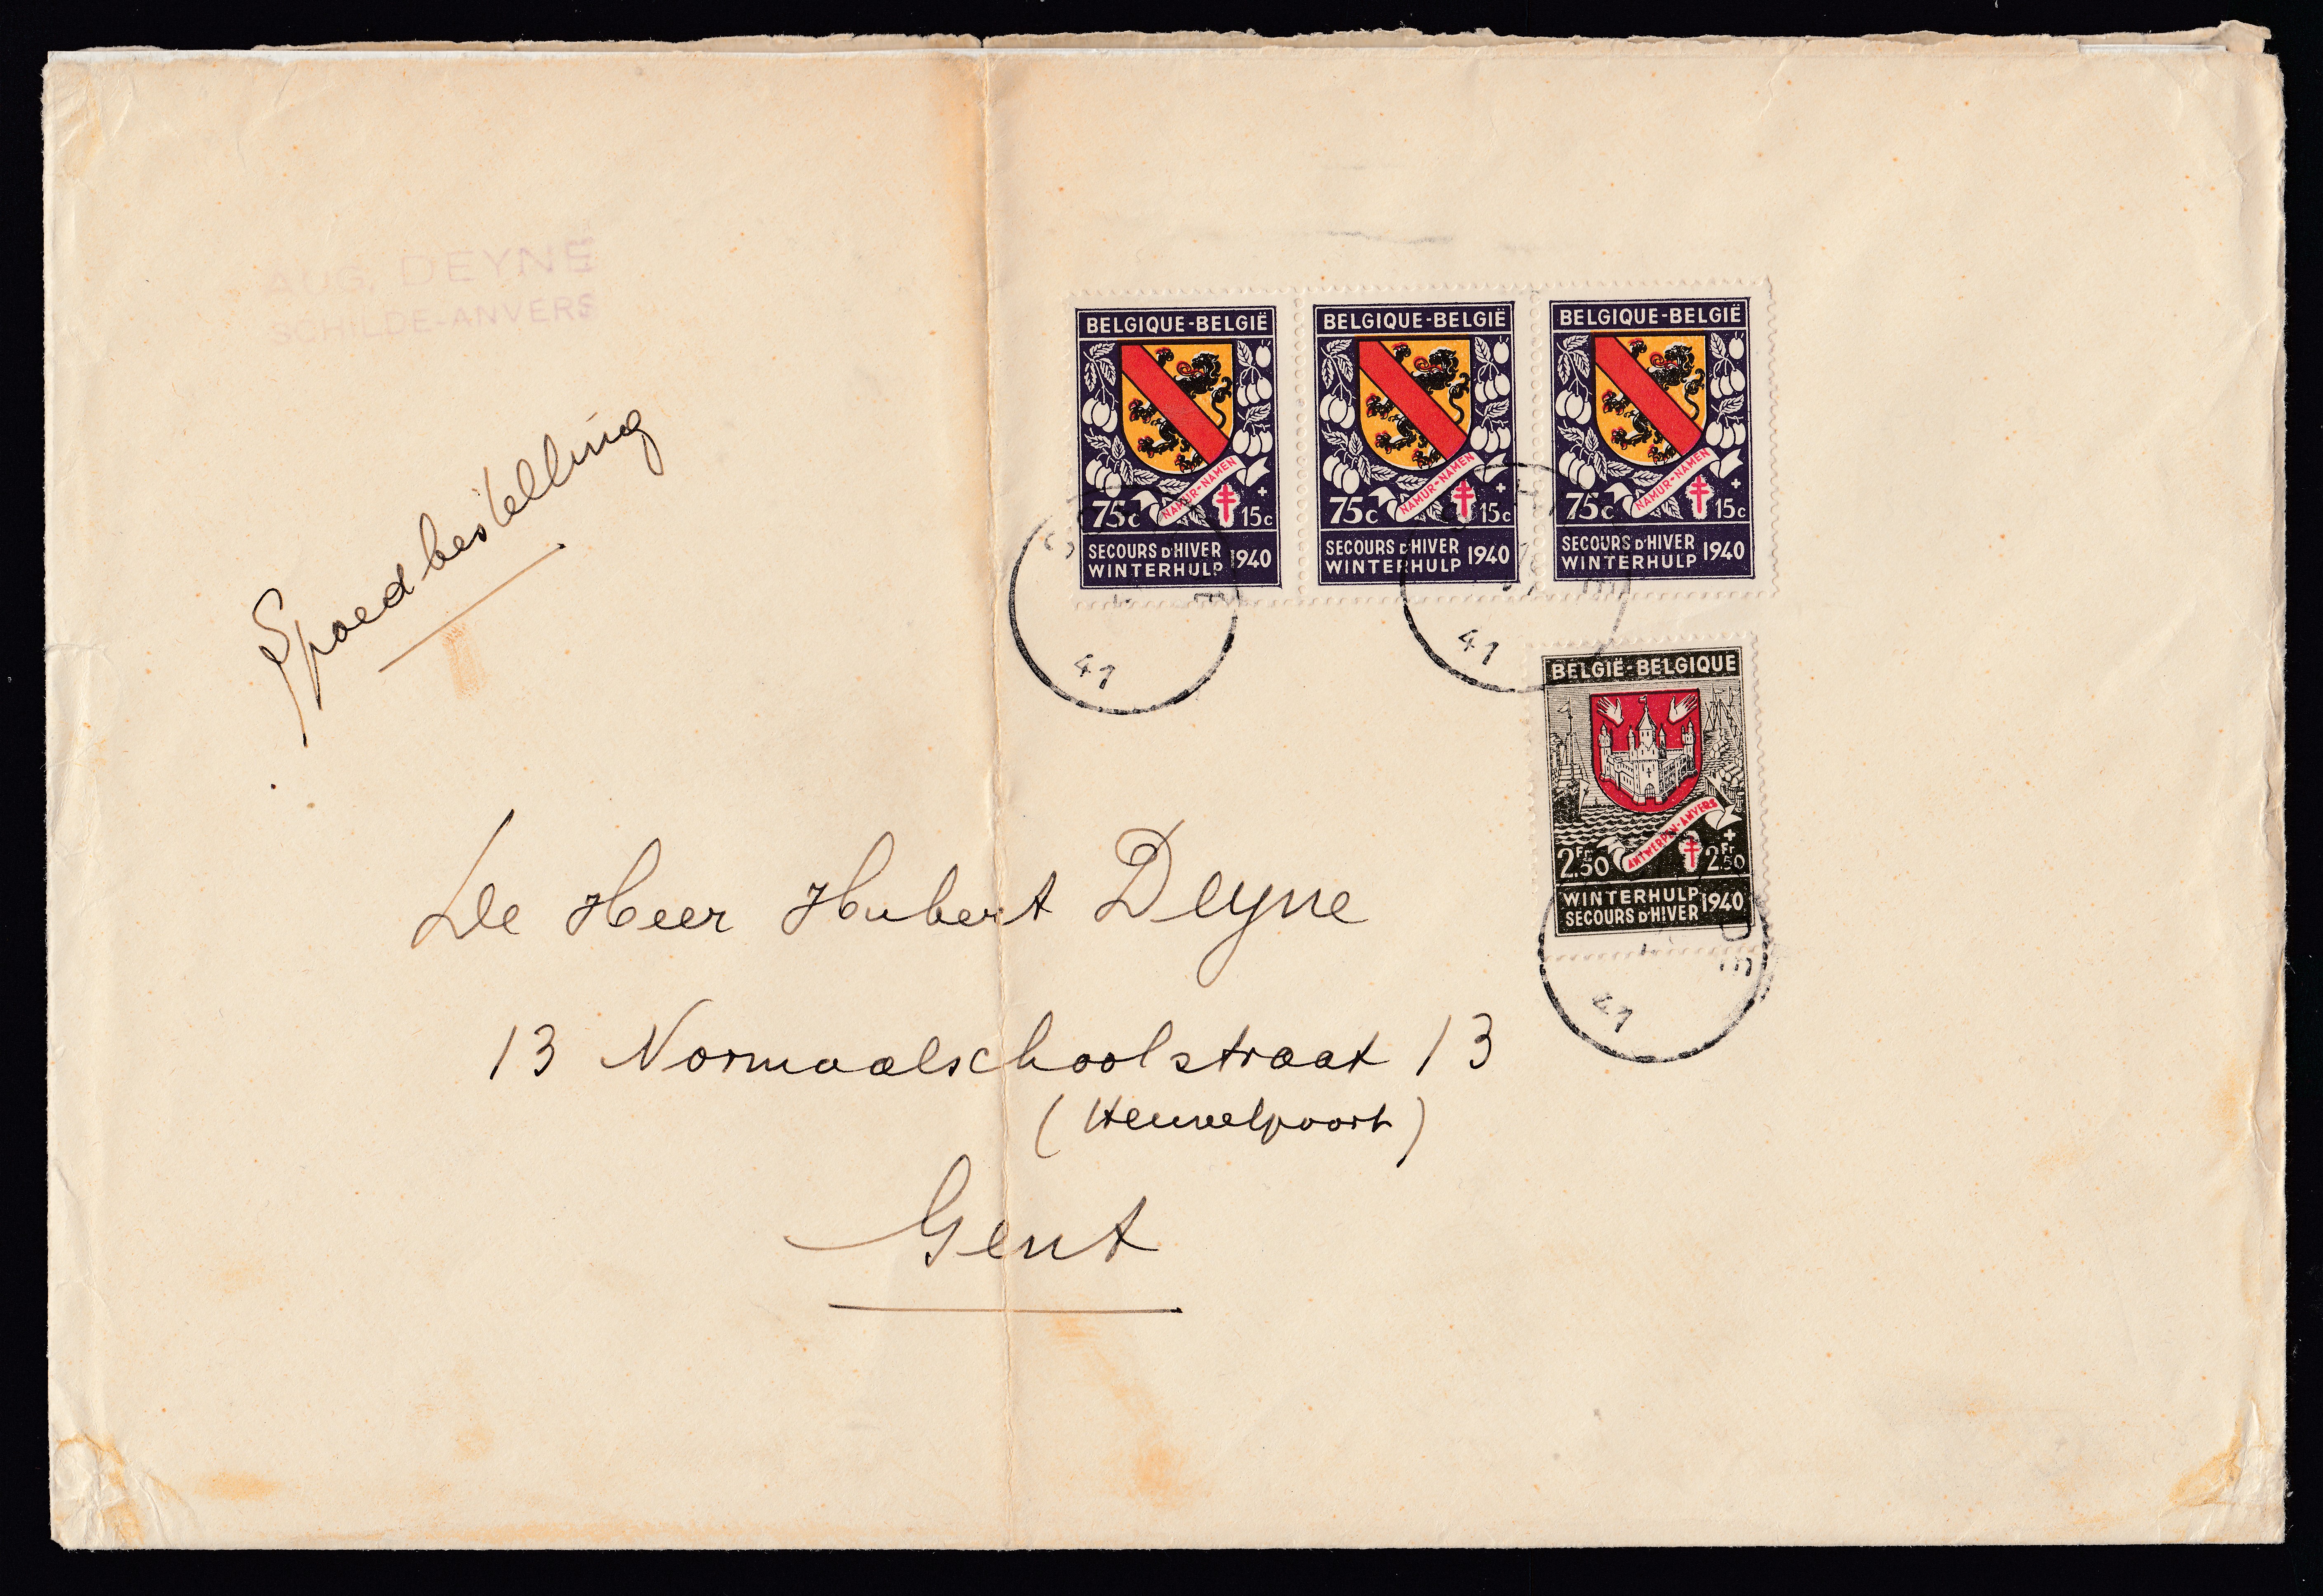 AUG. DEYNE
SCHILDE-ANVERS
Spoedbestelling
BELGIQUE-BELGIË
NAMUR-NAMEN
75c + 15c
SECOURS D'HIVER
WINTERHULP 1940
BELGIQUE-BELGIË
NAMUR-NAMEN
75c + 15c
SECOURS D'HIVER
WINTERHULP 1940
BELGIQUE-BELGIË
NAMUR-NAMEN
75c + 15c
SECOURS D'HIVER
WINTERHULP 1940
41
41
BELGIË-BELGIQUE
ANTWERPEN-ANVERS
2Fr50 + 2Fr50
WINTERHULP
SECOURS D'HIVER 1940
41
De Heer Hubert Deyne
13 Normaalschoolstraat 13
(Heuvelpoort)
Gent